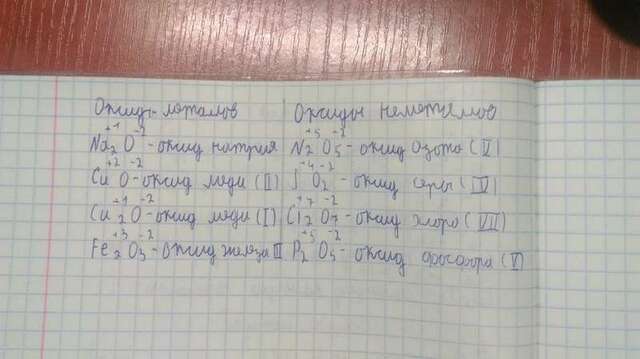 Оксиды металов | Оксиды неметалов
+1 -2 | +5 -2
Na2O - оксид натрия | N2O5 - оксид азота (V)
+2 -2 | +4 -2
CuO - оксид меди (II) | SO2 - оксид серы (IV)
+1 -2 | +7 -2
Cu2O - оксид меди (I) | Cl2O7 - оксид хлора (VII)
+3 -2 | +5 -2
Fe2O3 - оксид железа III | P2O5 - оксид фосфора (V)